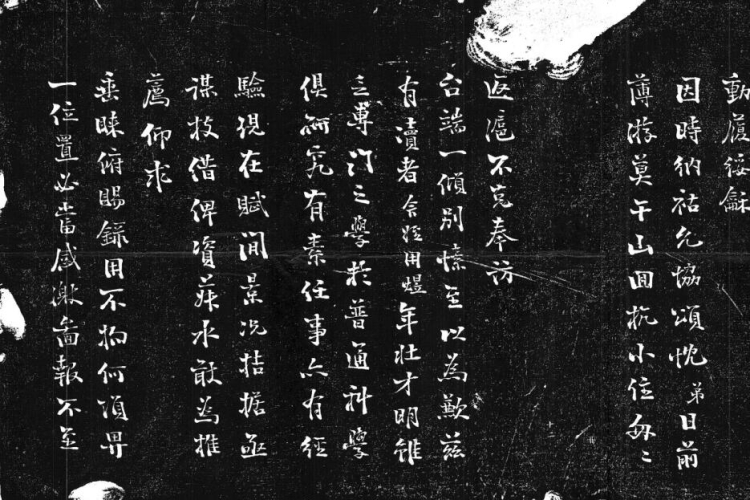 動履綏龢
因時納祜允協頌忱弟日前
薄游莫干山回杭小住匆々
返滬不克奉訪
台端一傾別愫至以為歉茲
有瀆者舍姪用煜年壯才明雖
之專門之學於普通科學
俱研究有素任事亦有經
驗現在賦閒景況拮据亟
謀枝借俾資菽水敢為推
薦仰求
垂睞俯賜錄用不拘何項畀
一位置必當感激啚報不至